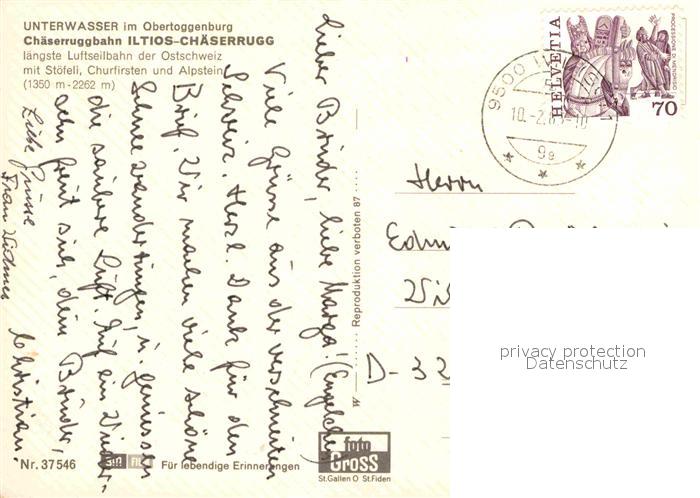 UNTERWASSER im Obertoggenburg
Chäserruggbahn ILTIOS-CHÄSERRUGG
längste Luftseilbahn der Ostschweiz
mit Stöfeli, Churfirsten und Alpstein
(1350 m - 2262 m)
Lieber Bruder, liebe Marga! (Engelchen)
Viele Grüsse aus der verschneiten
Schweiz. Herzl. Dank für den
Brief. Wir machen viele schöne
Schneewanderungen, u. geniessen
die saubere Luft. Auf ein Wieder-
sehn freut sich, dein Bruder,
Christian.
Liebe Grüsse
Frau Widmer
Nr. 37546
Für lebendige Erinnerungen
foto
GROSS
St. Gallen O St. Fiden
Reproduktion verboten 87
HELVETIA
PROCESSIONE DI MENDRISIO
70
9500
10.-2.8
9a
Herrn
D-32
privacy protection
Datenschutz